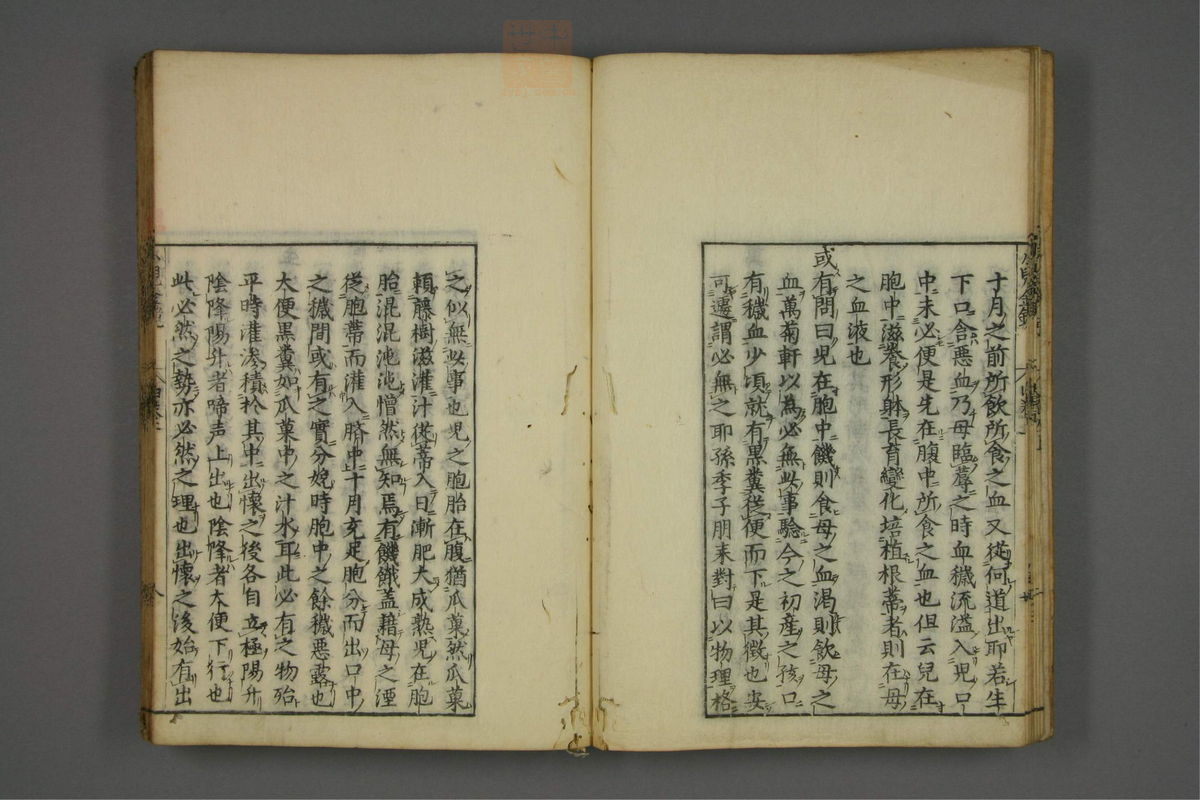 十月之前所飲所食之血又從何道出耶若生
下口含惡血乃母臨蓐之時血穢流溢入児口
中未必便是先在腹中所食之血也但云兒在
胞中滋養形躰長育變化培植根蒂者則在母
之血液也
或有問曰児在胞中饑則食母之血渇則飲母之
血萬菊軒以為必無此事驗今之初産之孩口
有穢血少頃就有黒糞從便而下是其徴也安
可遷謂必無之耶孫季子朋来對曰以物理格
之似無此事也児之胞胎在腹猶瓜菓然瓜菓
頼藤樹滋灌汁従蒂入日漸肥大成熟児在胞
胎混混沌沌憎然無知焉有饑餓蓋藉母之湮
従胞蒂而灌入臍中十月充足胞分而出口中
之穢間或有之實分娩時胞中之餘穢悪露也
大便黒糞如瓜菓中之汁水耳此必有之物殆
平時灌滲積於其中出懐之後各自立極陽升
陰降陽升者啼声上出也陰降者大便下行也
此必然之勢亦必然之理也出懐之後始有出